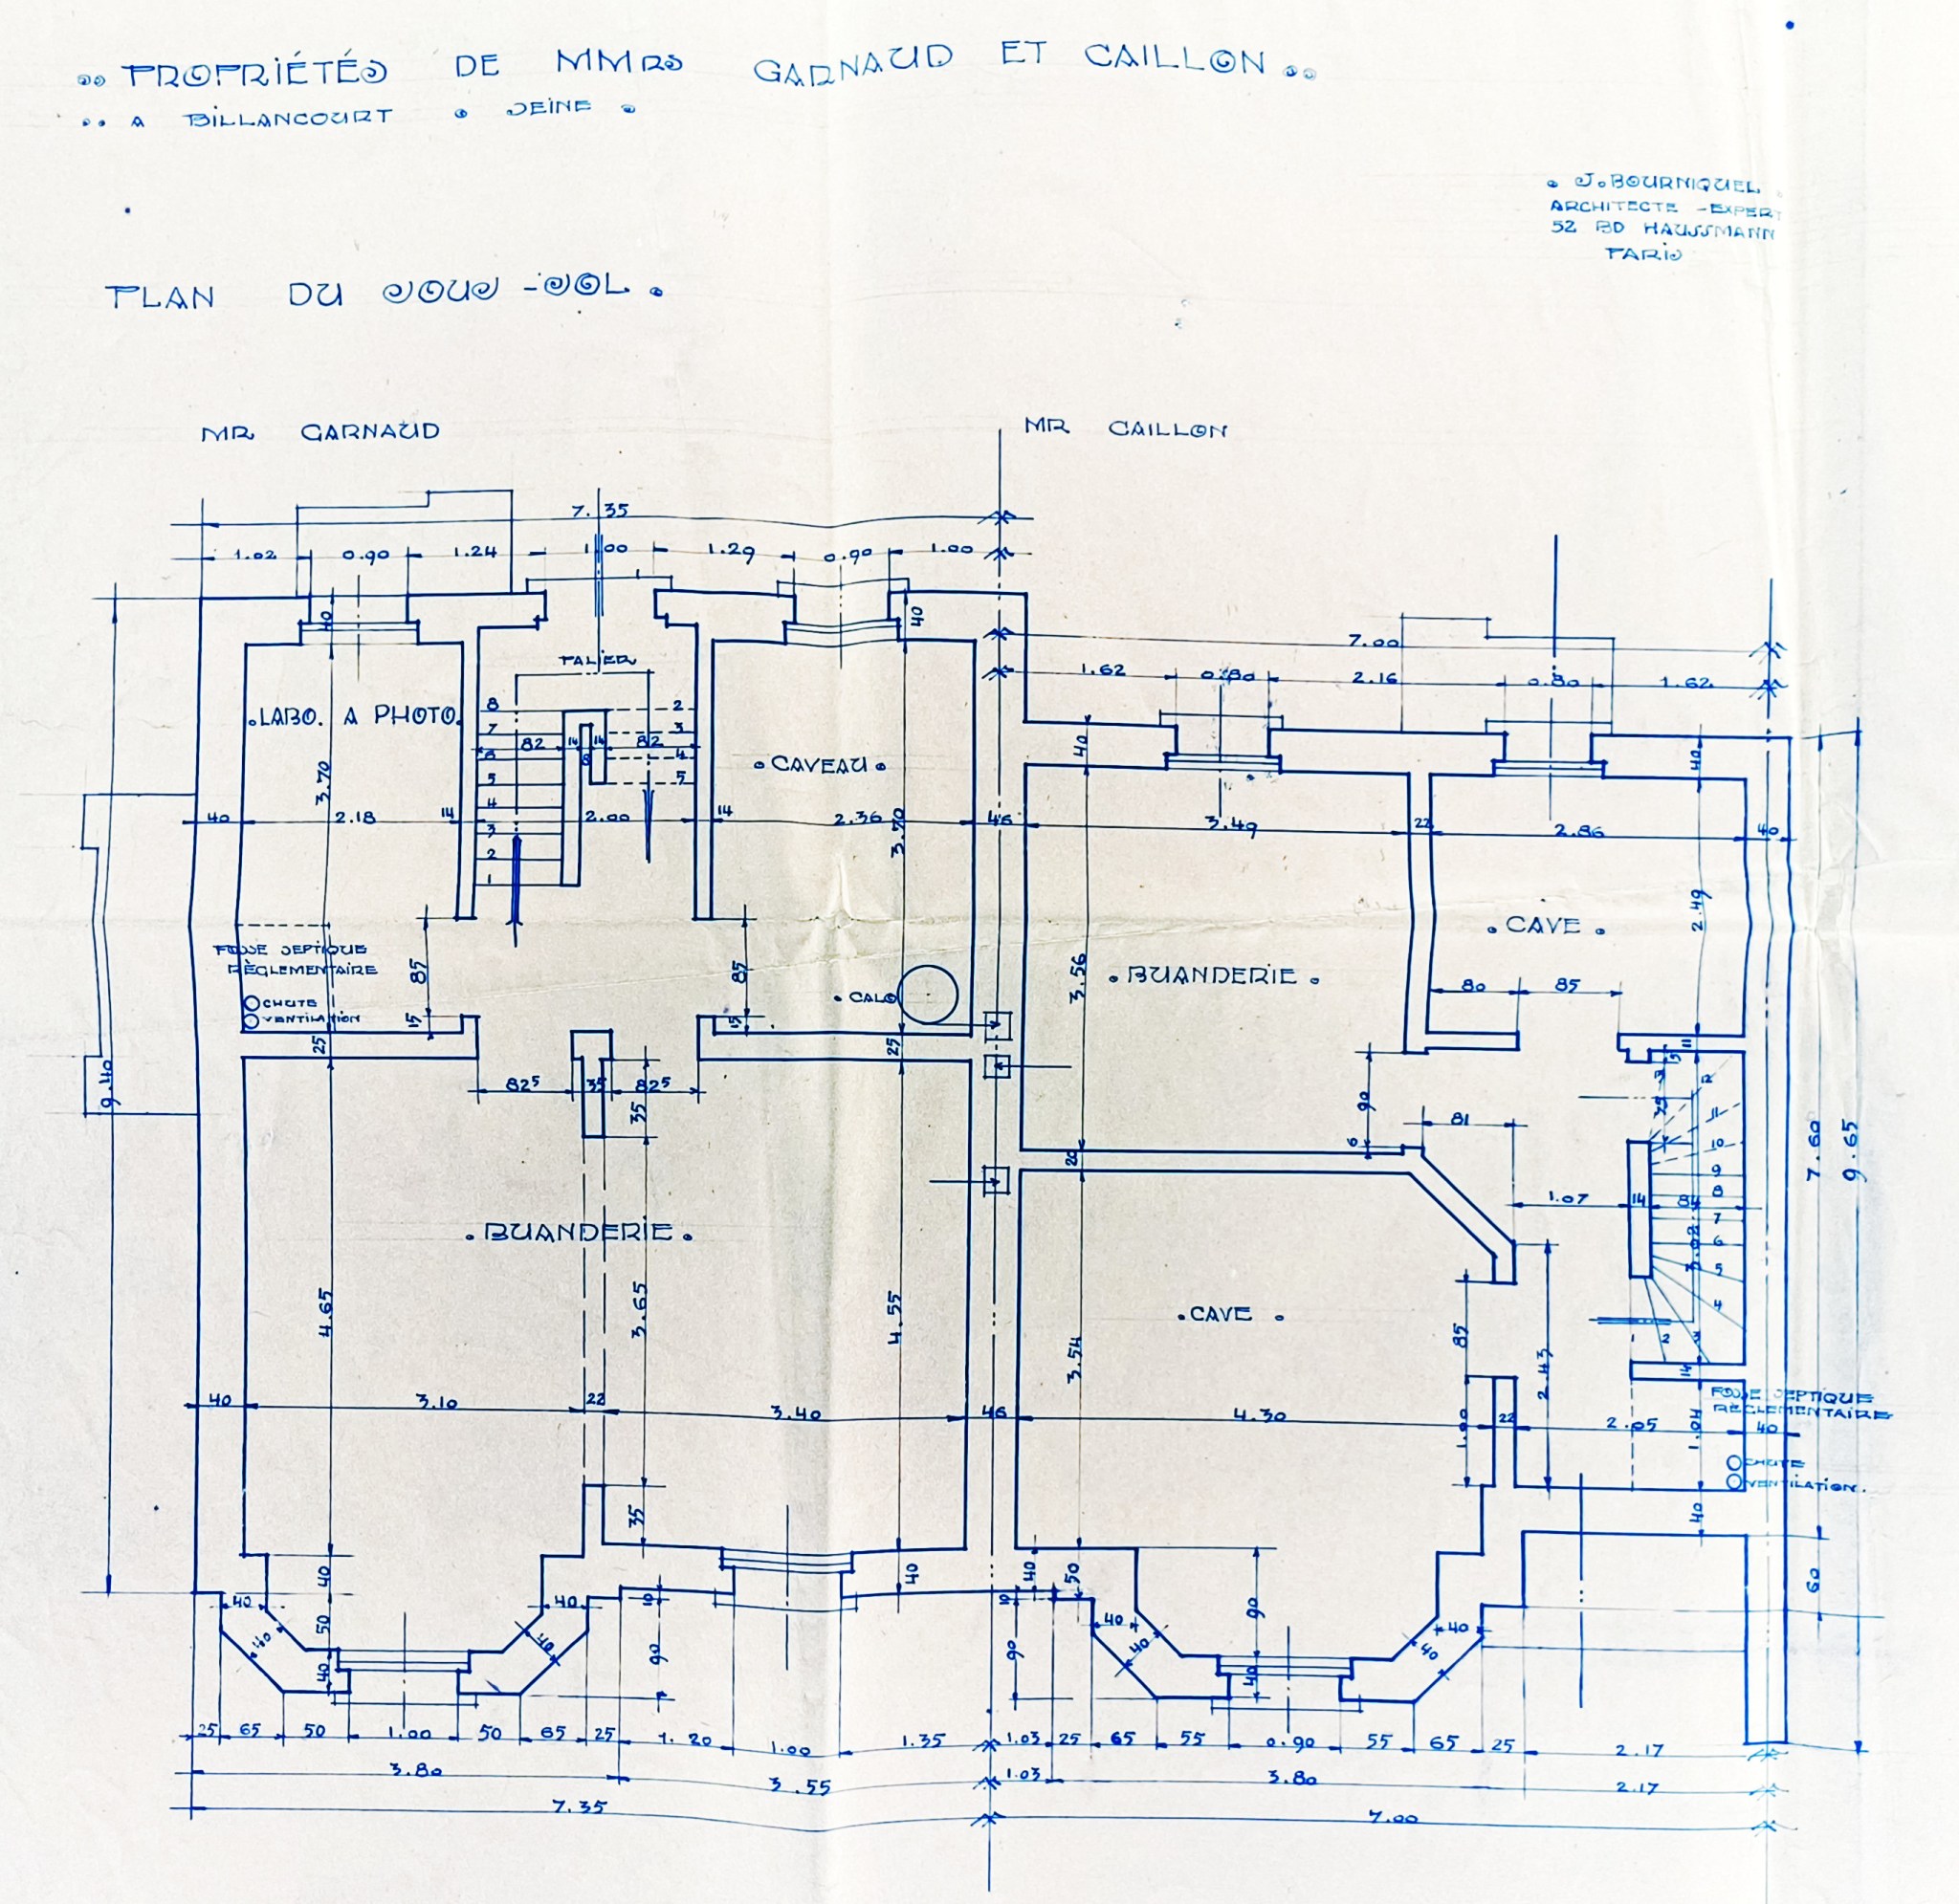 PROPRIÉTÉS DE MMRS GARNAUD ET CAILLON
A BILLANCOURT SEINE
J. BOURNIQUEL
ARCHITECTE - EXPERT
52 BD HAUSSMANN
PARIS
PLAN DU SOUS-SOL.
MR GARNAUD
MR CAILLON
7.35
1.02 0.90 1.24 1.00 1.29 0.90 1.00
7.00
1.62 0.80 2.16 0.80 1.62
40 40 40 40
PALIER
LABO. A PHOTO.
CAVEAU
8 7 6 5 4 3 2 1
2 3 4 5
82 14 8 14 82
3.70
3.70
40 2.18 14 2.00 14 2.36 46 3.49 22 2.86 40
2.49
CAVE
BUANDERIE
3.56
FOSSE SEPTIQUE
RÈGLEMENTAIRE
CHUTE
VENTILATION
85 85
15 15
25 25
CALO
80 85
11
9.40
82⁵ 35 82⁵
35
90
6
81
20
2 11 10 9 8 7 6 5 4 3 2
7.60
9.65
1.07 14 84
BUANDERIE
CAVE
4.65
3.65
4.55
3.54
85
2.43
14
FOSSE SEPTIQUE
RÈGLEMENTAIRE
CHUTE
VENTILATION.
40 3.10 22 3.40 46 4.30 22 2.05 40
1.00
1.04
35
40
60
40 50 40
40 40 40 40
10 90
40
10 90
40 50
90 40
40 40 40 40
25 65 50 1.00 50 65 25 1.20 1.00 1.35 1.03 25 65 55 0.90 55 65 25 2.17
3.80 3.55 1.03 3.80 2.17
7.35 7.00